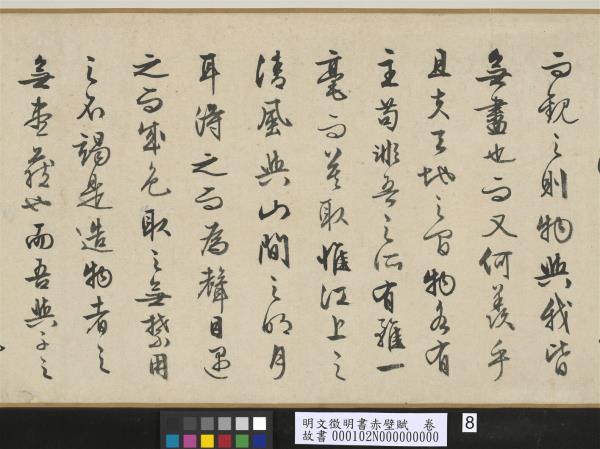 而觀之則物與我皆
無盡也而又何羨乎
且夫天地之間物各有
主苟非吾之所有雖一
毫而莫取惟江上之
清風與山間之明月
耳得之而為聲目遇
之而成色取之無禁用
之不竭是造物者之
無盡藏也而吾與子之
明文徵明書赤壁賦 卷
故書000102N000000000
8